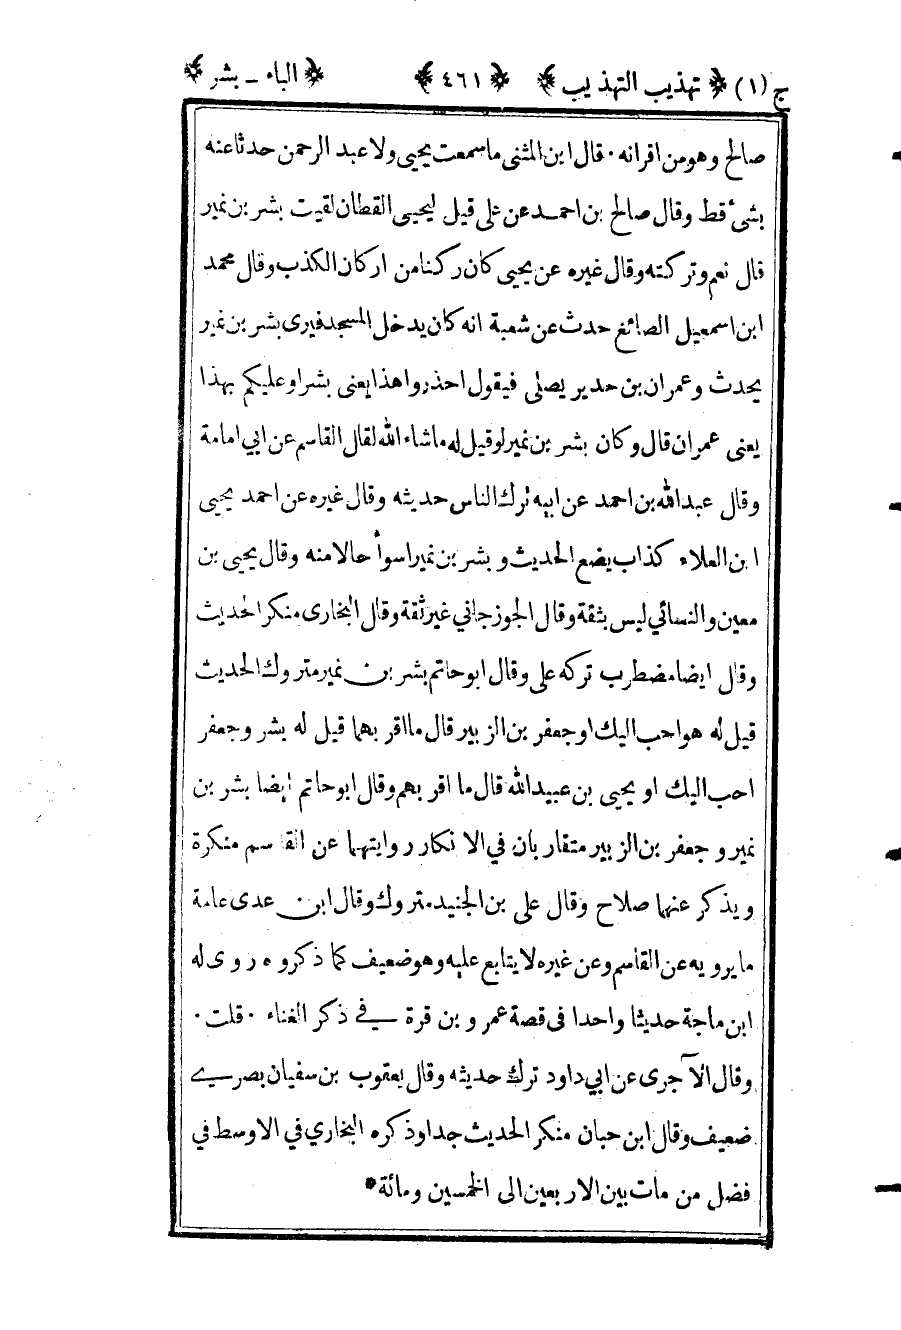 ج (١) ﴿ تهذيب التهذيب ﴾ ﴿ ٤٦١ ﴾ ﴿ الباء ـ بشر ﴾
صالح وهو من اقرانه · قال ابن المثنى ما سمعت يحيى ولا عبد الرحمن حدثا عنه
بشئ قط وقال صالح بن احمد عن على قيل ليحيى القطان لقيت بشر بن نمير
قال نعم وتركته وقال غيره عن يحيى كان ركنا من اركان الكذب وقال محمد
ابن اسمعيل الصائغ حدث عن شعبة انه كان يدخل المسجد فيرى بشر بن نمير
يحدث وعمران بن حدير يصلى فيقول احذروا هذا يعنى بشرا وعليكم بهذا
يعنى عمران قال وكان بشر بن نمير لو قيل له ماشاء الله لقال القاسم عن ابي امامة
وقال عبدالله بن احمد عن ابيه ترك الناس حديثه وقال غيره عن احمد يحيى
ابن العلاء كذاب يضع الحديث و بشر بن نمير اسوأ حالا منه وقال يحيى بن
معين والنسائي ليس بثقة وقال الجوزجاني غير ثقة وقال البخارى منكر الحديث
وقال ايضا مضطرب تركه على وقال ابو حاتم بشر بن نمير متروك الحديث
قيل له هو احب اليك او جعفر بن الزبير قال ما اقربهما قيل له بشر و جعفر
احب اليك او يحيى بن عبيدالله قال ما اقربهم وقال ابو حاتم ايضا بشر بن
نمير و جعفر بن الزبير متقاربان في الانكار روايتهما عن القاسم منكرة
و يذكر عنهما صلاح وقال على بن الجنيد متروك وقال ابن عدى عامة
ما يرويه عن القاسم وعن غيره لا يتابع عليه وهو ضعيف كما ذكروه روى له
ابن ماجة حديثا واحدا فى قصة عمرو بن قرة في ذكر الغناء · قلت ·
وقال الآجرى عن ابي داود ترك حديثه وقال يعقوب بن سفيان بصرى
ضعيف وقال ابن حبان منكر الحديث جدا وذكره البخاري في الاوسط في
فضل من مات بين الاربعين الى الخمسين ومائة *